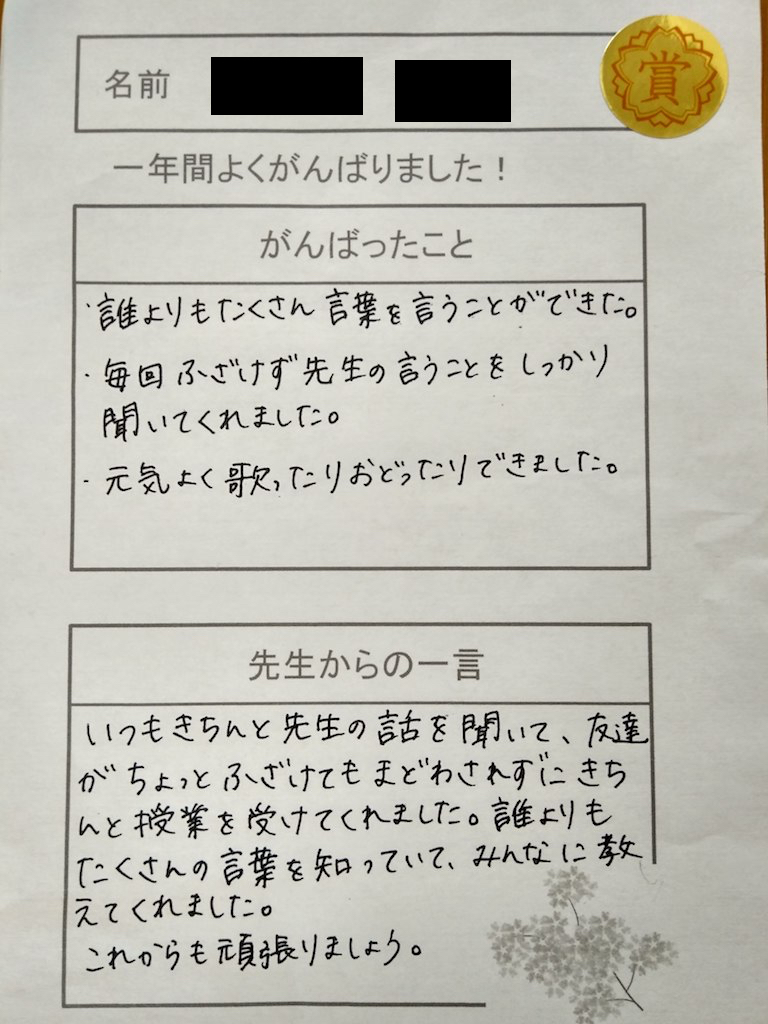 名前
賞
一年間よくがんばりました！
がんばったこと
・誰よりもたくさん言葉を言うことができた。
・毎回ふざけず先生の言うことをしっかり
聞いてくれました。
・元気よく歌ったりおどったりできました。
先生からの一言
いつもきちんと先生の話を聞いて、友達
がちょっとふざけてもまどわされずにきち
んと授業を受けてくれました。誰よりも
たくさんの言葉を知っていて、みんなに教
えてくれました。
これからも頑張りましょう。